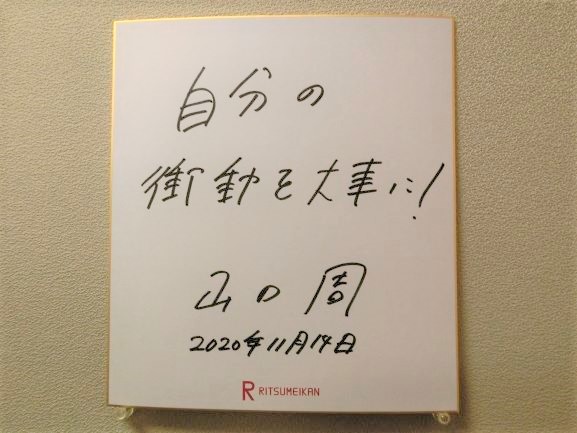 自分の
衝動を大事に!
山口周
2020年11月14日
R RITSUMEIKAN